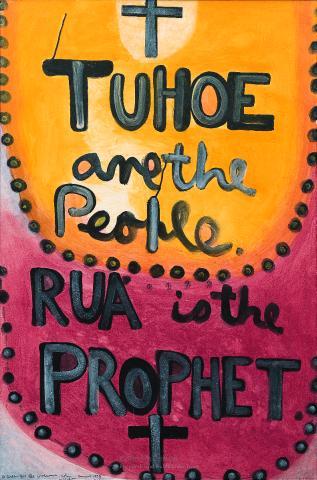 TUHOE
are the
People.
RUA is the
PROPHET